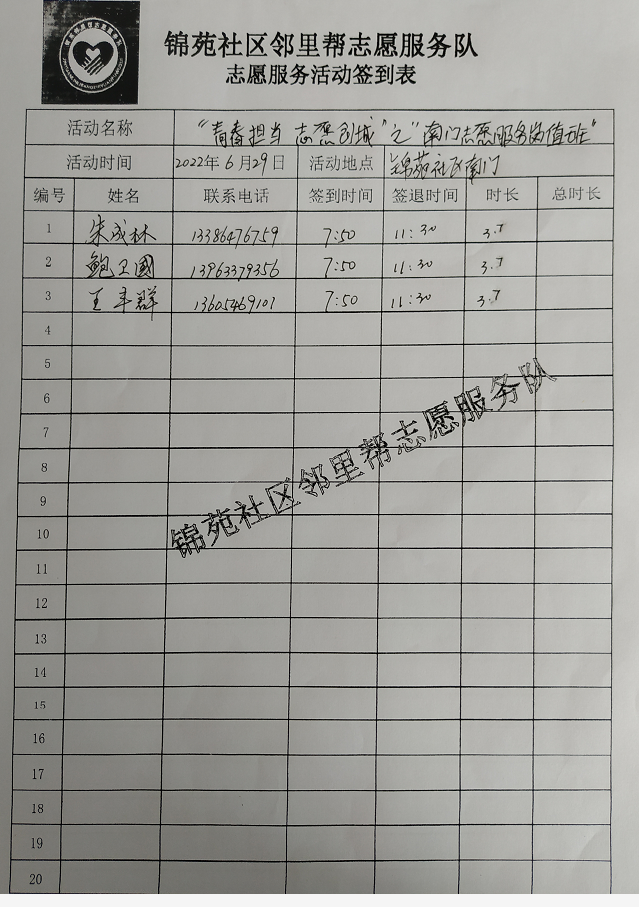 锦苑社区邻里帮志愿服务队
志愿服务活动签到表
活动名称 "青春担当 志愿创城"之"南门志愿服务岗值班"
活动时间 2022年6月29日 活动地点 锦苑社区南门
编号 姓名 联系电话 签到时间 签退时间 时长 总时长
1 朱成林 13386476759 7:50 11:30 3.7
2 鲍卫國 13963379356 7:50 11:30 3.7
3 王丰群 13605469101 7:50 11:30 3.7
4
5
6
7
8
9
10
11
12
13
14
15
16
17
18
19
20
锦苑社区邻里帮志愿服务队